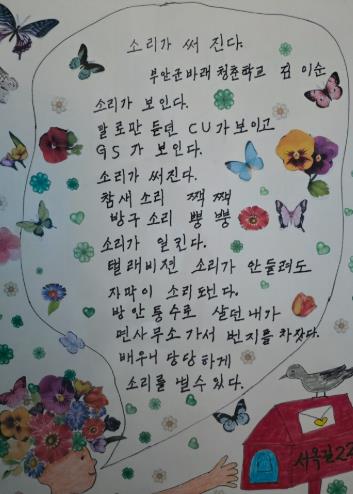 소리가 써 진다.
부안군바래 청춘학교 김 이순
소리가 보인다.
말로만 듣던 CU가 보이고
GS 가 보인다.
소리가 써진다.
참새 소리 짹 짹
방구 소리 뿡 뿡
소리가 일킨다.
텔래비젼 소리가 안들려도
자막이 소리된다.
방안 퉁수로 살던 내가
면사무소 가서 번지를 차잤다.
배우니 당당하게
소리를 낼수 있다.
서옥길22